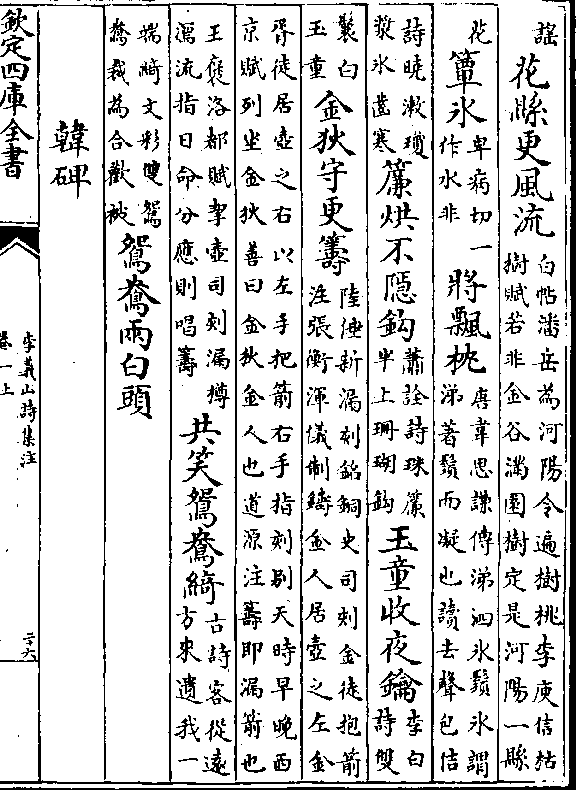 謡花縣更風流白帖潘岳為河陽令遍樹桃李庾信枯樹賦若非金谷滿園樹定是河陽一縣
花簟氷卑病切一作水非將飄枕唐韋思謙傳涕泗氷鬚氷謂涕著鬚而凝也讀去聲包佶
詩曉漱瓊漿氷齒寒簾烘不隱鈎蕭詮詩珠簾半上珊瑚鈎玉童收夜鑰李白詩雙
鬟白玉童金狄守更籌陸倕新漏刻銘銅史司刻金徒抱箭注張衡渾儀制鑄金人居壺之左金
胥徒居壺之右以左手把箭右手指刻别天時早晚西京賦列坐金狄善曰金狄金人也道源注籌即漏箭也
王褒洛都賦挈壺司刻漏樽瀉流指日命分應則唱籌共笑鴛鴦綺古詩客從遠方來遺我一
端綺文彩雙鴛鴦裁為合歡被鴛鴦兩白頭
韓碑
欽定四庫全書
李義山詩集注
卷一上
二十六